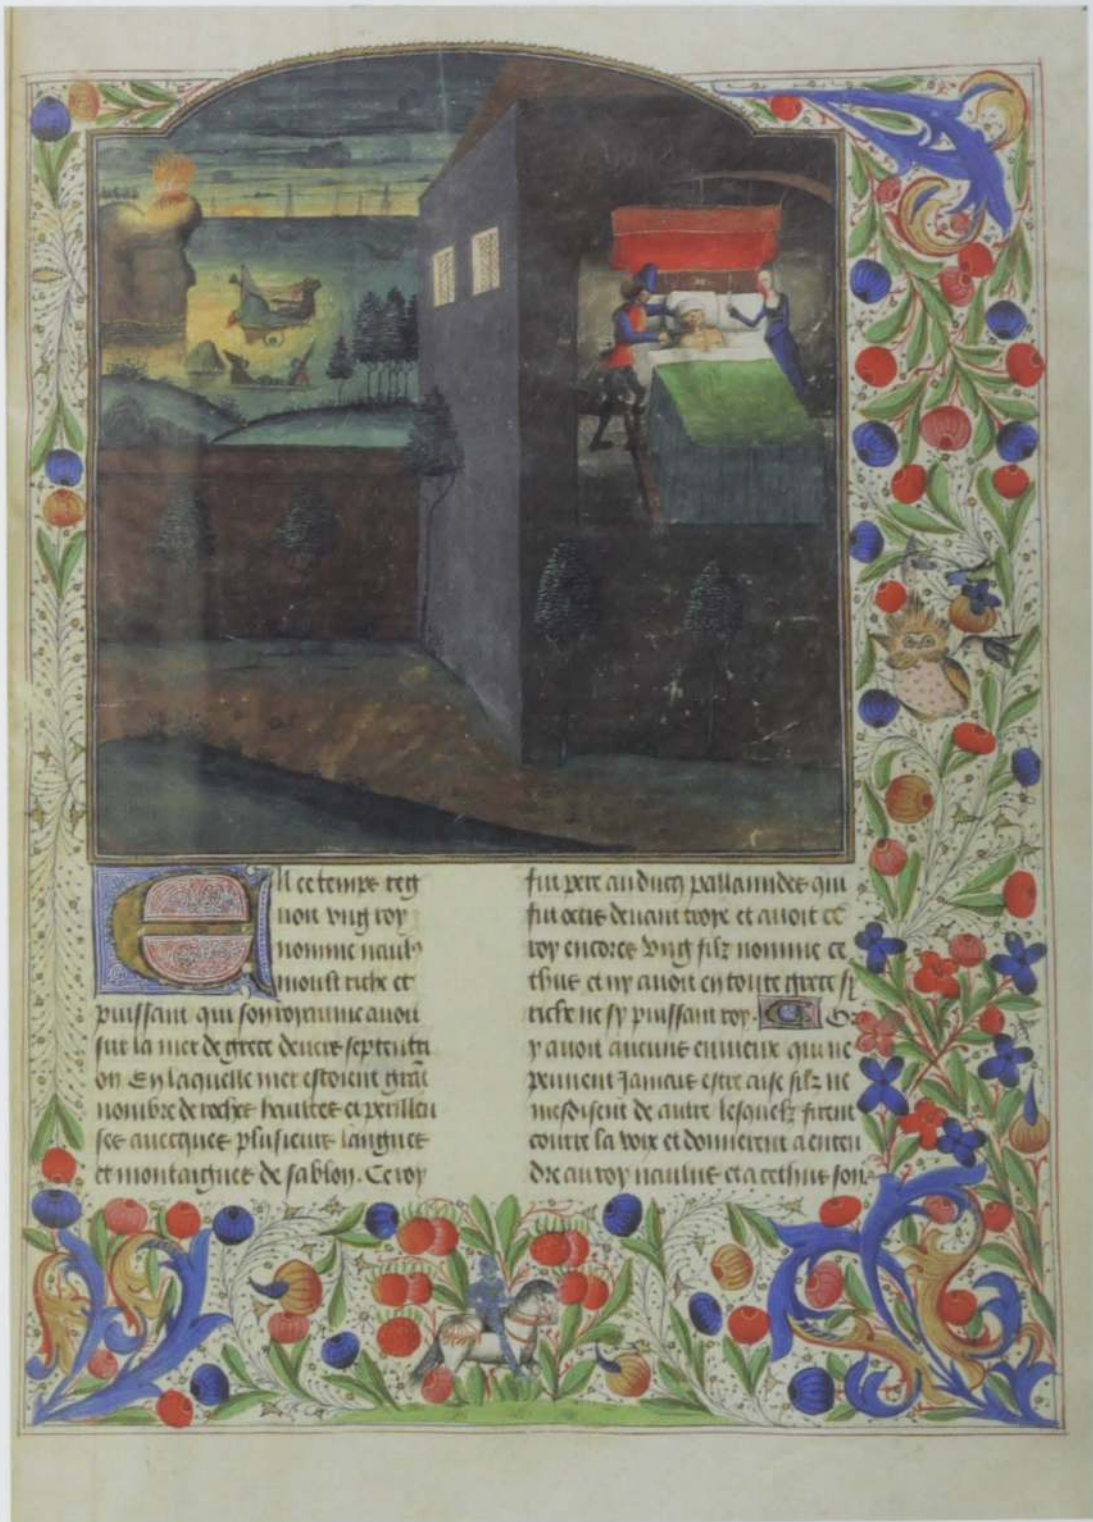 En ce temps reg
noit ung roy
nomme naul⁹
moult riche et
puissant qui son royaume avoit
sur la mer de grece devers septentri
on En laquelle mer estoient grāt
nombre de roches haultes et perilleu
ses avecques plusieurs langues
et montaignes de sablon. Ce roy
fut pere au ducq pallamides qui
fut occis devant troye et avoit ce
roy encores ung filz nomme ce
thus et ny avoit en toute grece sy
riche ne sy puissant roy. Or
y avoit aucuns envieux qui ne
peuvent Jamais estre aise silz ne
mesdisent de autre lesquelz firent
courre la voix et donnerent a enten
dre au roy naulus et a cethus son